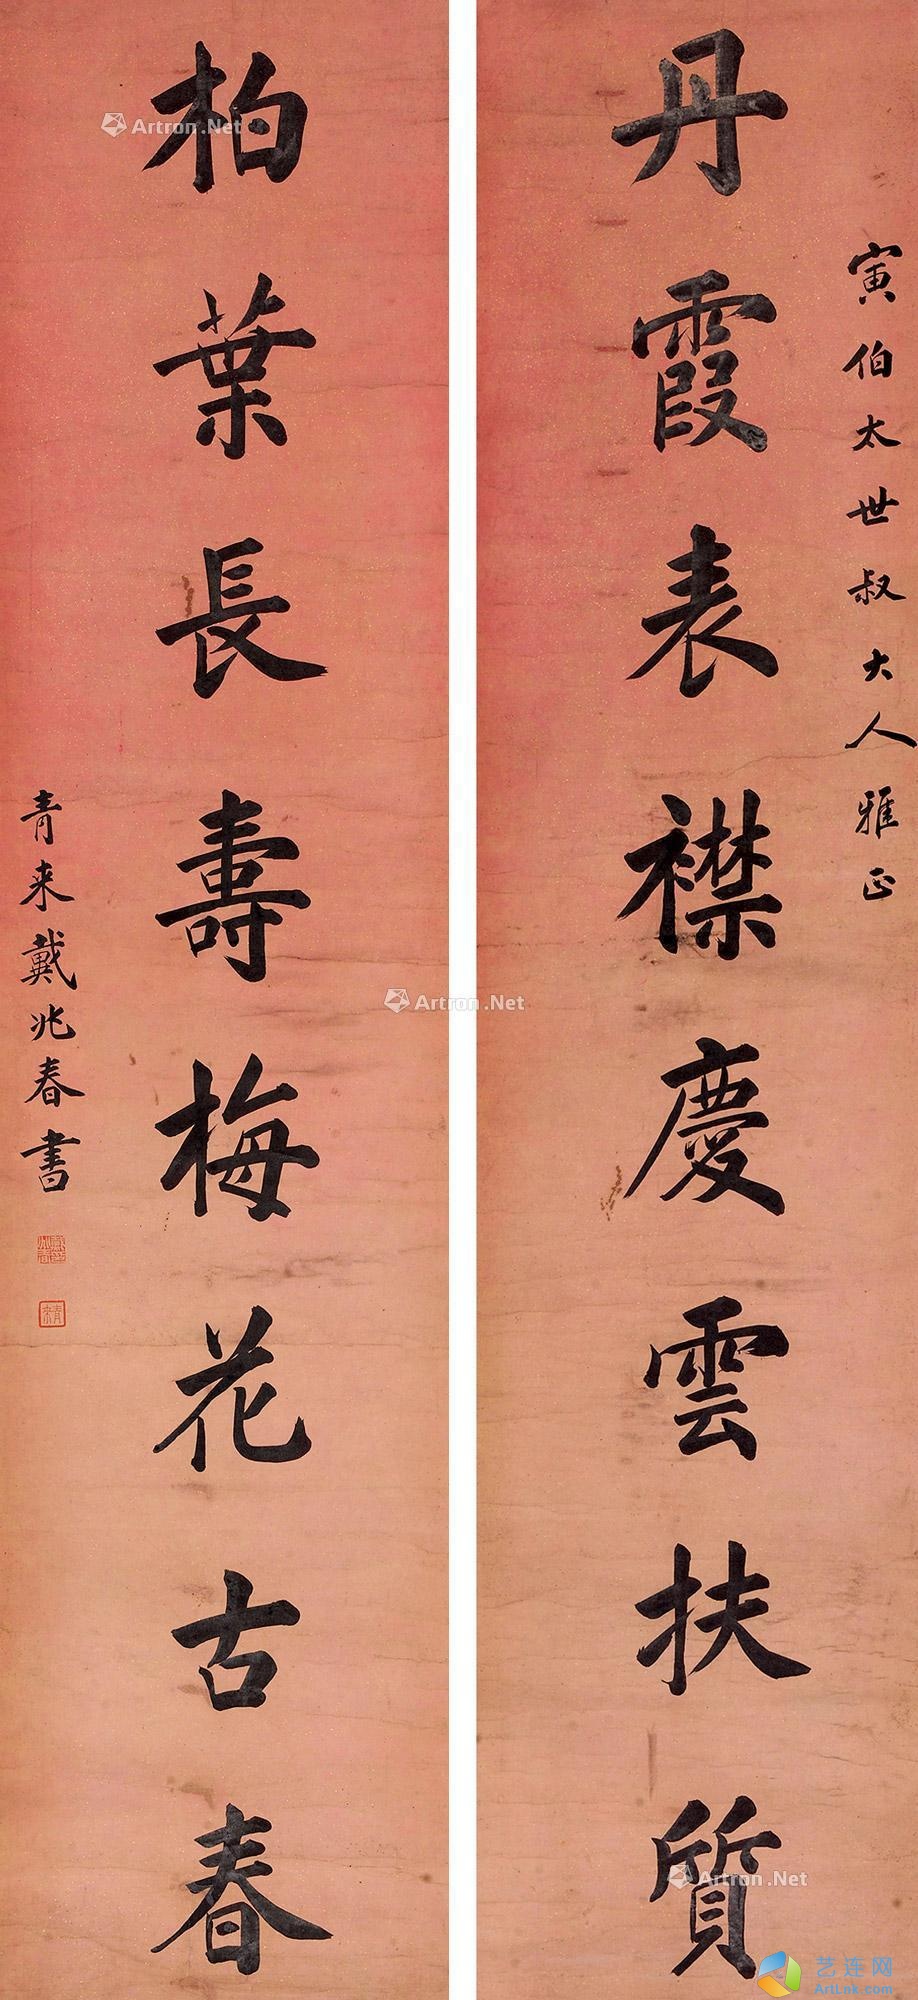 寅伯太世叔大人雅正
丹霞表襟慶雲扶質
柏葉長壽梅花古春
青来戴兆春書
Artron.Net
Artron.Net
Artron.Net
艺连网
ArtLnk.com